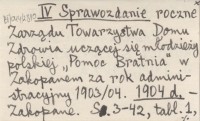 IV Sprawozdanie roczne
Zarządu Towarzystwa Domu
Zdrowia uczącej się młodzieży
polskiej „Pomoc Bratnia" w
Zakopanem za rok admini-
stracyjny 1903/04. 1904 d.-
Zakopane. S. 3-42, tabl. 1,